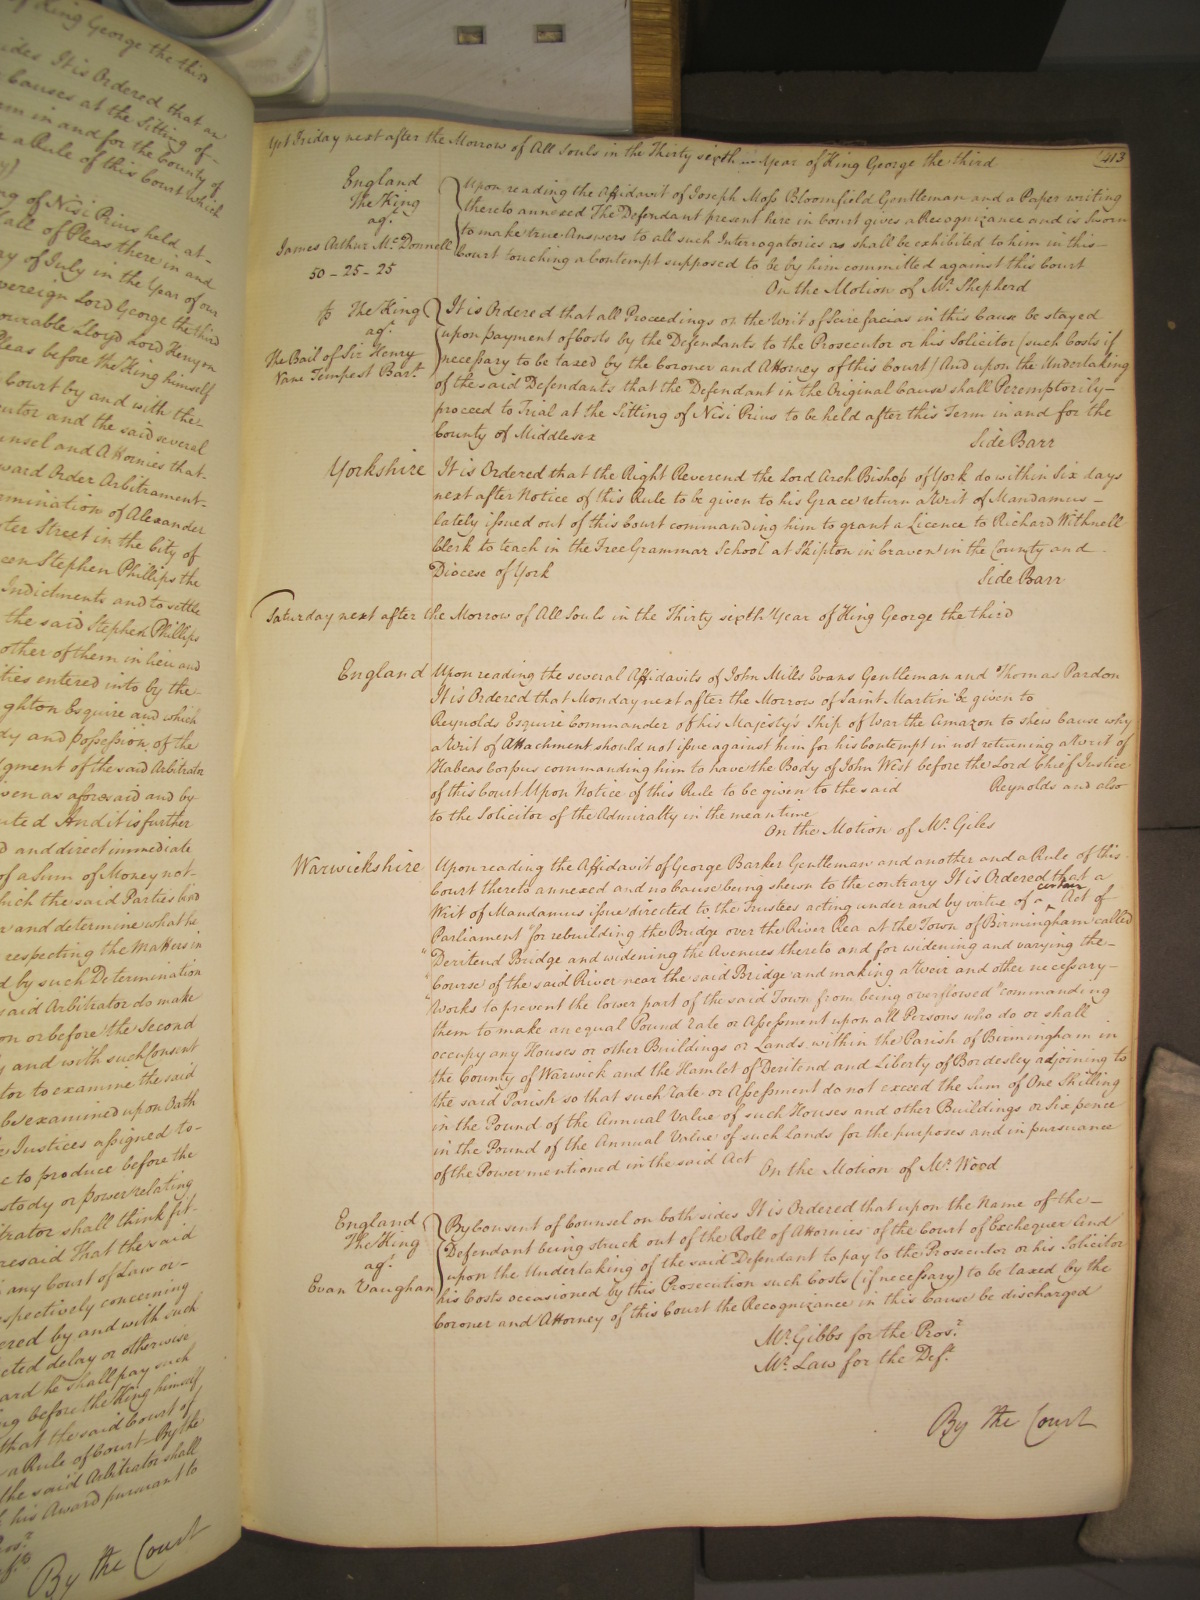 of King George the third
sides It is Ordered that an
Causes at the Sitting of
in and for the County of
a Rule of this Court which
of Nisi Prius held at
Hall of Pleas there in and
day of July in the Year of our
Sovereign Lord George the third
Honourable Lloyd Lord Kenyon
Pleas before the King himself
Court by and with the
and the said several
Counsel and Attornies that
Award Order Arbitrament
Determination of Alexander
Street in the City of
Stephen Phillips the
Indictments and to settle
the said Stephen Phillips
other of them in lieu and
entered into by the
Esquire and which
and possession of the
Judgment of the said Arbitrator
as aforesaid and by
And it is further
and direct immediate
of a Sum of Money not
which the said Parties
and determine what he
respecting the Matters in
by such Determination
said Arbitrator do make
on or before the Second
and with such Consent
to examine the said
be examined upon Oath
Justices assigned to
to produce before the
Custody or power relating
Arbitrator shall think fit
That the said
any Court of Law or
respectively concerning
by and with such
delay or otherwise
he shall pay such
before the King himself
that the said Court of
a Rule of Court By the
the said Arbitrator shall
his Award pursuant to
By the Court
Yet Friday next after the Morrow of All Souls in the Thirty sixth Year of King George the third
413
England
The King
agt.
James Arthur Mc.Donnell
50 - 25 - 25
Upon reading the Affidavit of Joseph Moss Bloomfield Gentleman and a Paper writing
thereto annexed The Defendant present here in Court gives a Recognizance and is Sworn
to make true Answers to all such Interrogatories as shall be exhibited to him in this
Court touching a Contempt supposed to be by him committed against this Court
On the Motion of Mr. Shepherd
The King
agt.
The Bail of Sir Henry
Vane Tempest Bart.
It is Ordered that all Proceedings on the Writ of Scire facias in this Cause be stayed
upon payment of Costs by the Defendants to the Prosecutor or his Solicitor (such Costs if
necessary to be taxed by the Coroner and Attorney of this Court) And upon the Undertaking
of the said Defendants that the Defendant in the Original Cause shall Peremptorily
proceed to Trial at the Sitting of Nisi Prius to be held after this Term in and for the
County of Middlesex
Side Barr
Yorkshire
It is Ordered that the Right Reverend the Lord Arch Bishop of York do within Six days
next after Notice of this Rule to be given to his Grace return a Writ of Mandamus
lately issued out of this Court commanding him to grant a Licence to Richard Withnell
Clerk to teach in the Free Grammar School at Skipton in Craven in the County and
Diocese of York
Side Barr
Saturday next after the Morrow of All Souls in the Thirty sixth Year of King George the third
England
Upon reading the several Affidavits of John Mills Evans Gentleman and Thomas Pardon
It is Ordered that Monday next after the Morrow of Saint Martin be given to
Reynolds Esquire Commander of his Majesty's Ship of War the Amazon to shew Cause why
a Writ of Attachment should not issue against him for his Contempt in not returning a Writ of
Habeas Corpus commanding him to have the Body of John West before the Lord Chief Justice
of this Court Upon Notice of this Rule to be given to the said Reynolds and also
to the Solicitor of the Admiralty in the mean time
On the Motion of Mr. Giles
Warwickshire
Upon reading the Affidavit of George Barker Gentleman and another and a Rule of this
Court thereto annexed and no Cause being shewn to the contrary It is Ordered that a
Writ of Mandamus issue directed to the Trustees acting under and by virtue of a certain Act of
Parliament "for rebuilding the Bridge over the River Rea at the Town of Birmingham called
"Deritend Bridge and widening the Avenues thereto and for widening and varying the
"Course of the said River near the said Bridge and making a Weir and other necessary
"Works to prevent the lower part of the said Town from being overflowed" commanding
them to make an equal Pound rate or Assessment upon all Persons who do or shall
occupy any Houses or other Buildings or Lands within the Parish of Birmingham in
the County of Warwick and the Hamlet of Deritend and Liberty of Bordesley adjoining to
the said Parish so that such rate or Assessment do not exceed the Sum of One Shilling
in the Pound of the Annual Value of such Houses and other Buildings or Six pence
in the Pound of the Annual Value of such Lands for the purposes and in pursuance
of the Power mentioned in the said Act
On the Motion of Mr. Wood
England
The King
agt.
Evan Vaughan
By Consent of Counsel on both sides It is Ordered that upon the Name of the
Defendant being struck out of the Roll of Attornies of the Court of Exchequer And
upon the Undertaking of the said Defendant to pay to the Prosecutor or his Solicitor
his Costs occasioned by this Prosecution such Costs (if necessary) to be taxed by the
Coroner and Attorney of this Court the Recognizance in this Cause be discharged
Mr. Gibbs for the Prosr.
Mr. Law for the Deft.
By the Court